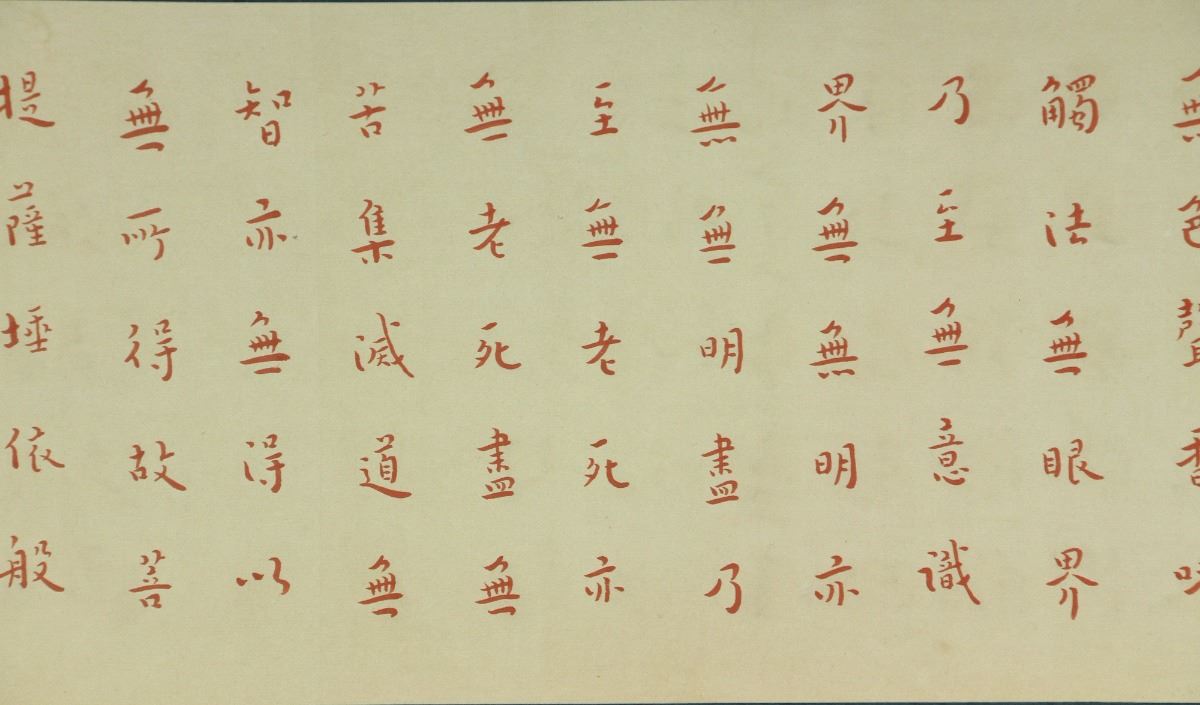 無色聲香味
觸法無眼界
乃至無意識
界無無明亦
無無明盡乃
至無老死亦
無老死盡無
苦集滅道無
智亦無得以
無所得故菩
提薩埵依般